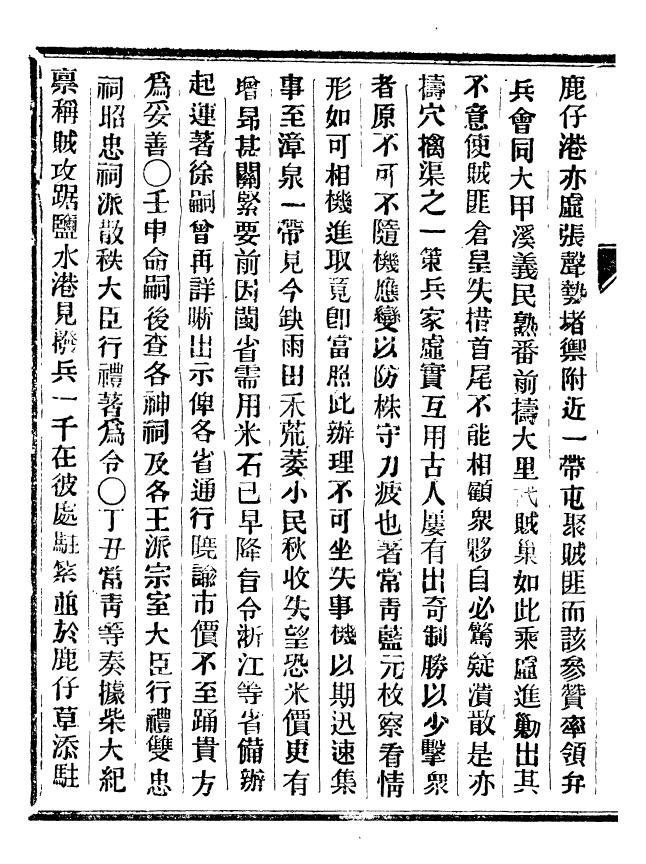 鹿仔港亦虛張聲勢堵禦附近一帶屯聚賊匪而該參贊率領弁
兵會同大甲溪義民熟番前擣大里杙賊巢如此乘虛進勦出其
不意使賊匪倉皇失措首尾不能相顧衆夥自必驚疑潰散是亦
擣穴擒渠之一策兵家虛實互用古人屢有出奇制勝以少擊衆
者原不可不隨機應變以防株守刀疲也著常靑藍元枚察看情
形如可相機進取竟卽富照此辦理不可坐失事機以期迅速集
事至漳泉一帶見今缺雨田禾荒萎小民秋收失望恐米價更有
增昻甚關緊要前因閩省需用米石已早降旨令浙江等省備辦
起運著徐嗣曾再詳晰出示俾各省通行曉諭市價不至踊貴方
爲妥善〇壬申命嗣後查各神祠及各王派宗室大臣行禮雙忠
祠昭忠祠派散秩大臣行禮著爲令〇丁丑常靑等奏據柴大紀
禀稱賊攻踞鹽水港見撥兵一千在彼處駐紮並於鹿仔草添駐